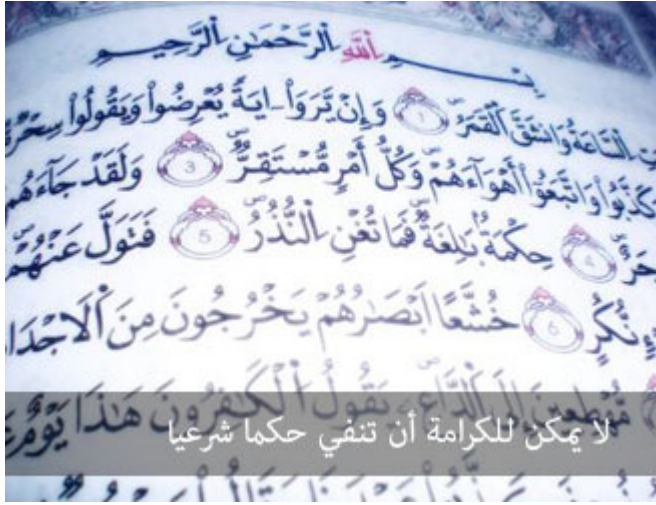 بِسْمِ اِ۬للَّهِ اِ۬لرَّحْمَٰنِ اِ۬لرَّحِيمِ
اِ۬لسَّاعَةُ وَانشَقَّ اَ۬لْقَمَرُ 1 وَإِنْ يَّرَوَاْ ءَايَةً يُعْرِضُواْ وَيَقُولُواْ سِحْرٌ
وَكَذَّبُواْ وَاتَّبَعُوٓاْ أَهْوَآءَهُمْ وَكُلُّ أَمْرٍ مُّسْتَقِرٌّ 3 وَلَقَدْ جَآءَهُم
4 حِكْمَةٌ بَٰلِغَةٌ فَمَا تُغْنِ اِ۬لنُّذُرُ 5 فَتَوَلَّ عَنْهُمْ
نُّكُرٍ 6 خُشَّعاً اَبْصَٰرُهُمْ يَخْرُجُونَ مِنَ اَ۬لَاجْدَا
مُّهْطِعِينَ إِلَى اَ۬لدَّاعِ يَقُولُ اُ۬لْكَٰفِرُونَ هَٰذَا يَوْمٌ
لا يمكن للكرامة أن تنفي حكما شرعيا